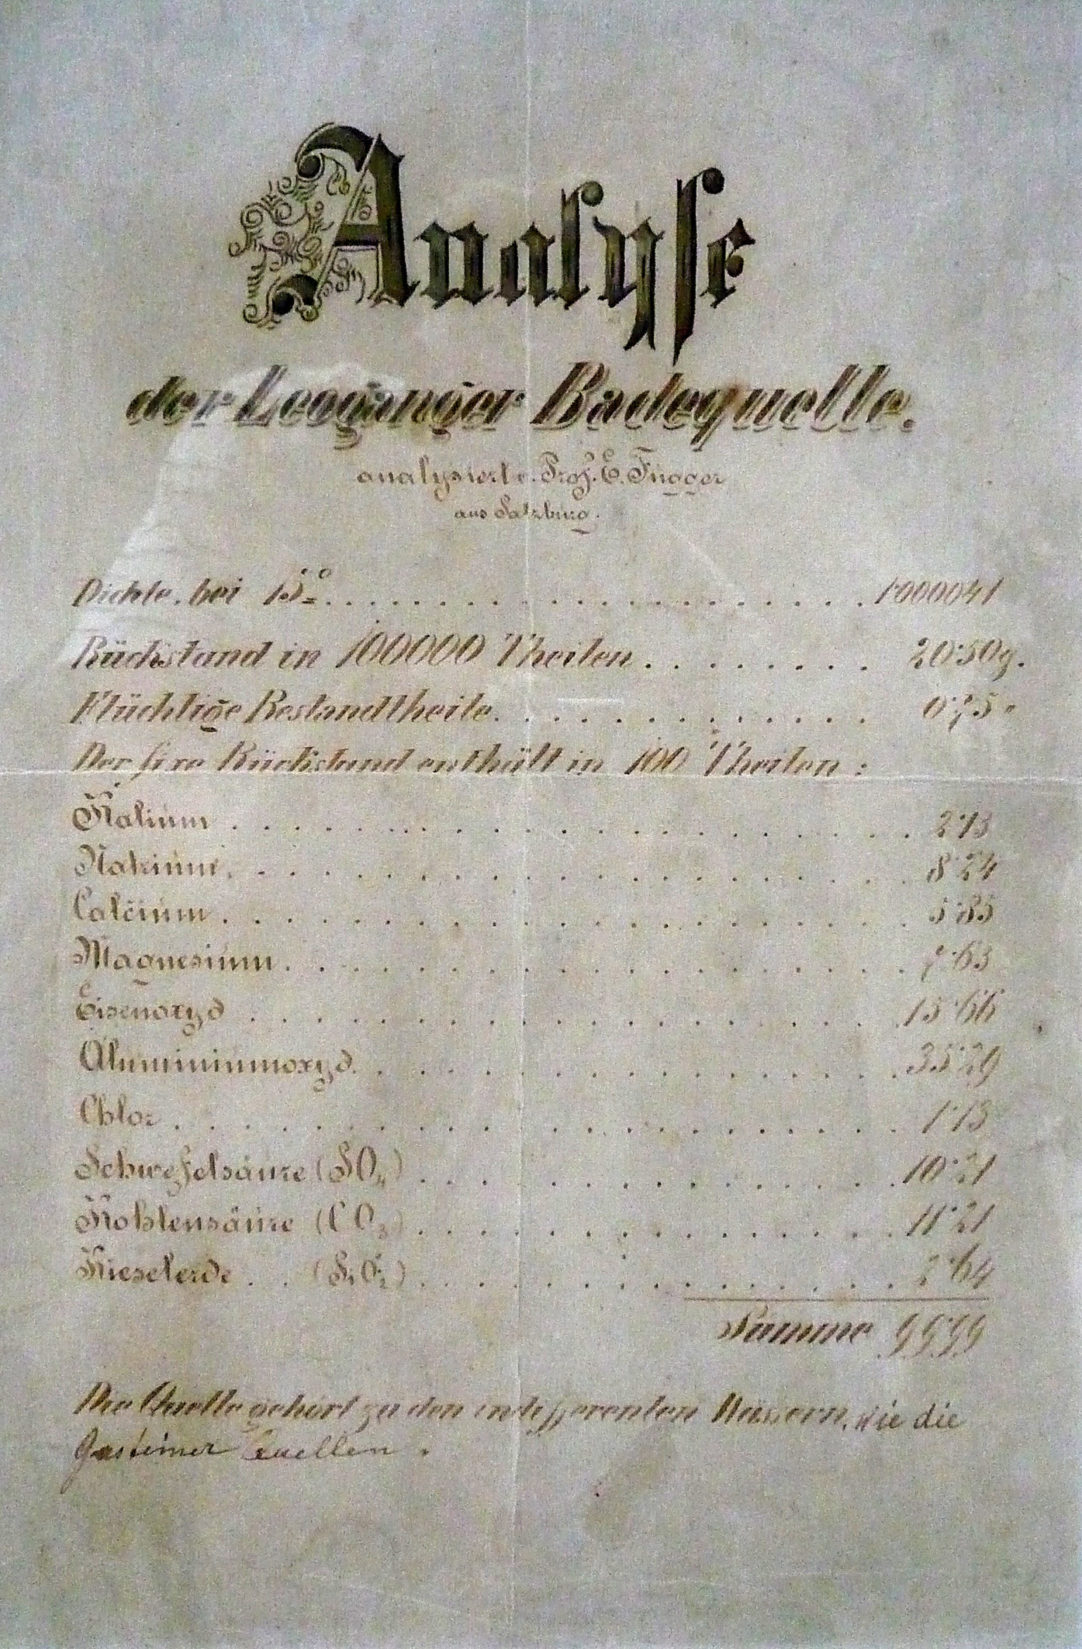 Analyſe
der Leoganger Badequelle.
analysiert v. Prof. E. Fugger
aus Salzburg.
Dichte bei 15° ..................... 1·000041
Rückstand in 100000 Theilen ......... 20·50g.
Flüchtige Bestandtheile ............. 0·75 "
Der fixe Rückstand enthält in 100 Theilen :
Kalium ..................... 2·13
Natrium ..................... 8·24
Calcium ..................... 5·85
Magnesium ................... 7·63
Eisenoxyd ................... 15·66
Aluminiumoxyd ................ 35·29
Chlor ..................... 1·13
Schwefelsäure (SO₄) ............... 10·21
Kohlensäure (CO₃) ............... 11·21
Kieselerde .. (SiO₂) ............... 2·64
Summe 99·99
Die Quelle gehört zu den indifferenten Wässern, wie die
Gasteiner Quellen .